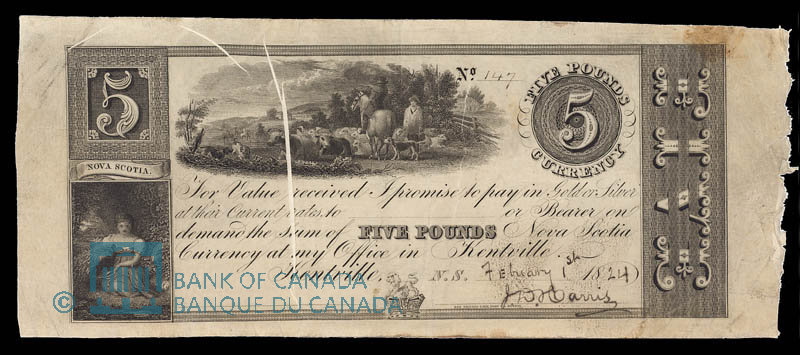 5
NOVA SCOTIA.
No 147
FIVE POUNDS
5
CURRENCY
For Value received I promise to pay in Gold or Silver
at their Current rates to or Bearer on
demand the Sum of FIVE POUNDS Nova Scotia
Currency at my Office in Kentville.
Kentville, N.S. February 1st 1824
J D Harris
© BANK OF CANADA
BANQUE DU CANADA